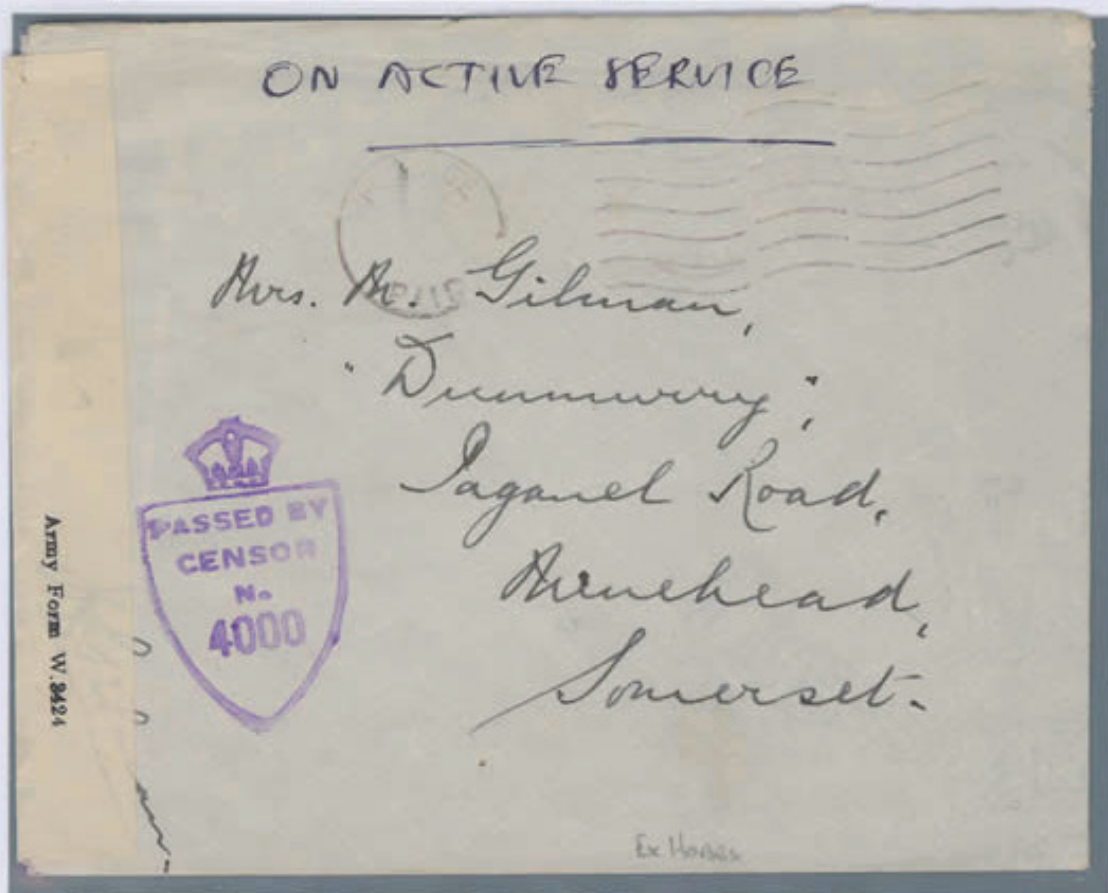 ON ACTIVE SERVICE
Mrs. M. Gilman,
"Dunmurry",
Paganel Road,
Minehead,
Somerset.
PASSED BY
CENSOR
No
4000
Army Form W.3424
Ex Hobbs